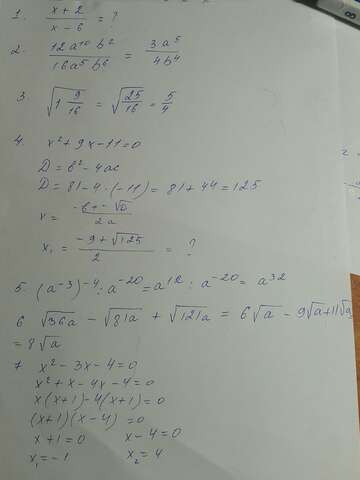 1. (x + 2)/(x - 6) = ?
2. (12a¹⁰b²)/(16a⁵b⁶) = (3a⁵)/(4b⁴)
3. √(1 9/16) = √(25/16) = 5/4
4. x² + 9x - 11 = 0
D = b² - 4ac
D = 81 - 4 · (-11) = 81 + 44 = 125
x = (-b + - √D)/(2a)
x₁ = (-9 + √125)/2 = ?
5. (a⁻³)⁻⁴ : a⁻²⁰ = a¹² : a⁻²⁰ = a³²
6 √36a - √81a + √121a = 6√a - 9√a + 11√a
= 8√a
7 x² - 3x - 4 = 0
x² + x - 4x - 4 = 0
x(x+1) - 4(x+1) = 0
(x+1)(x-4) = 0
x + 1 = 0 x - 4 = 0
x₁ = -1 x₂ = 4